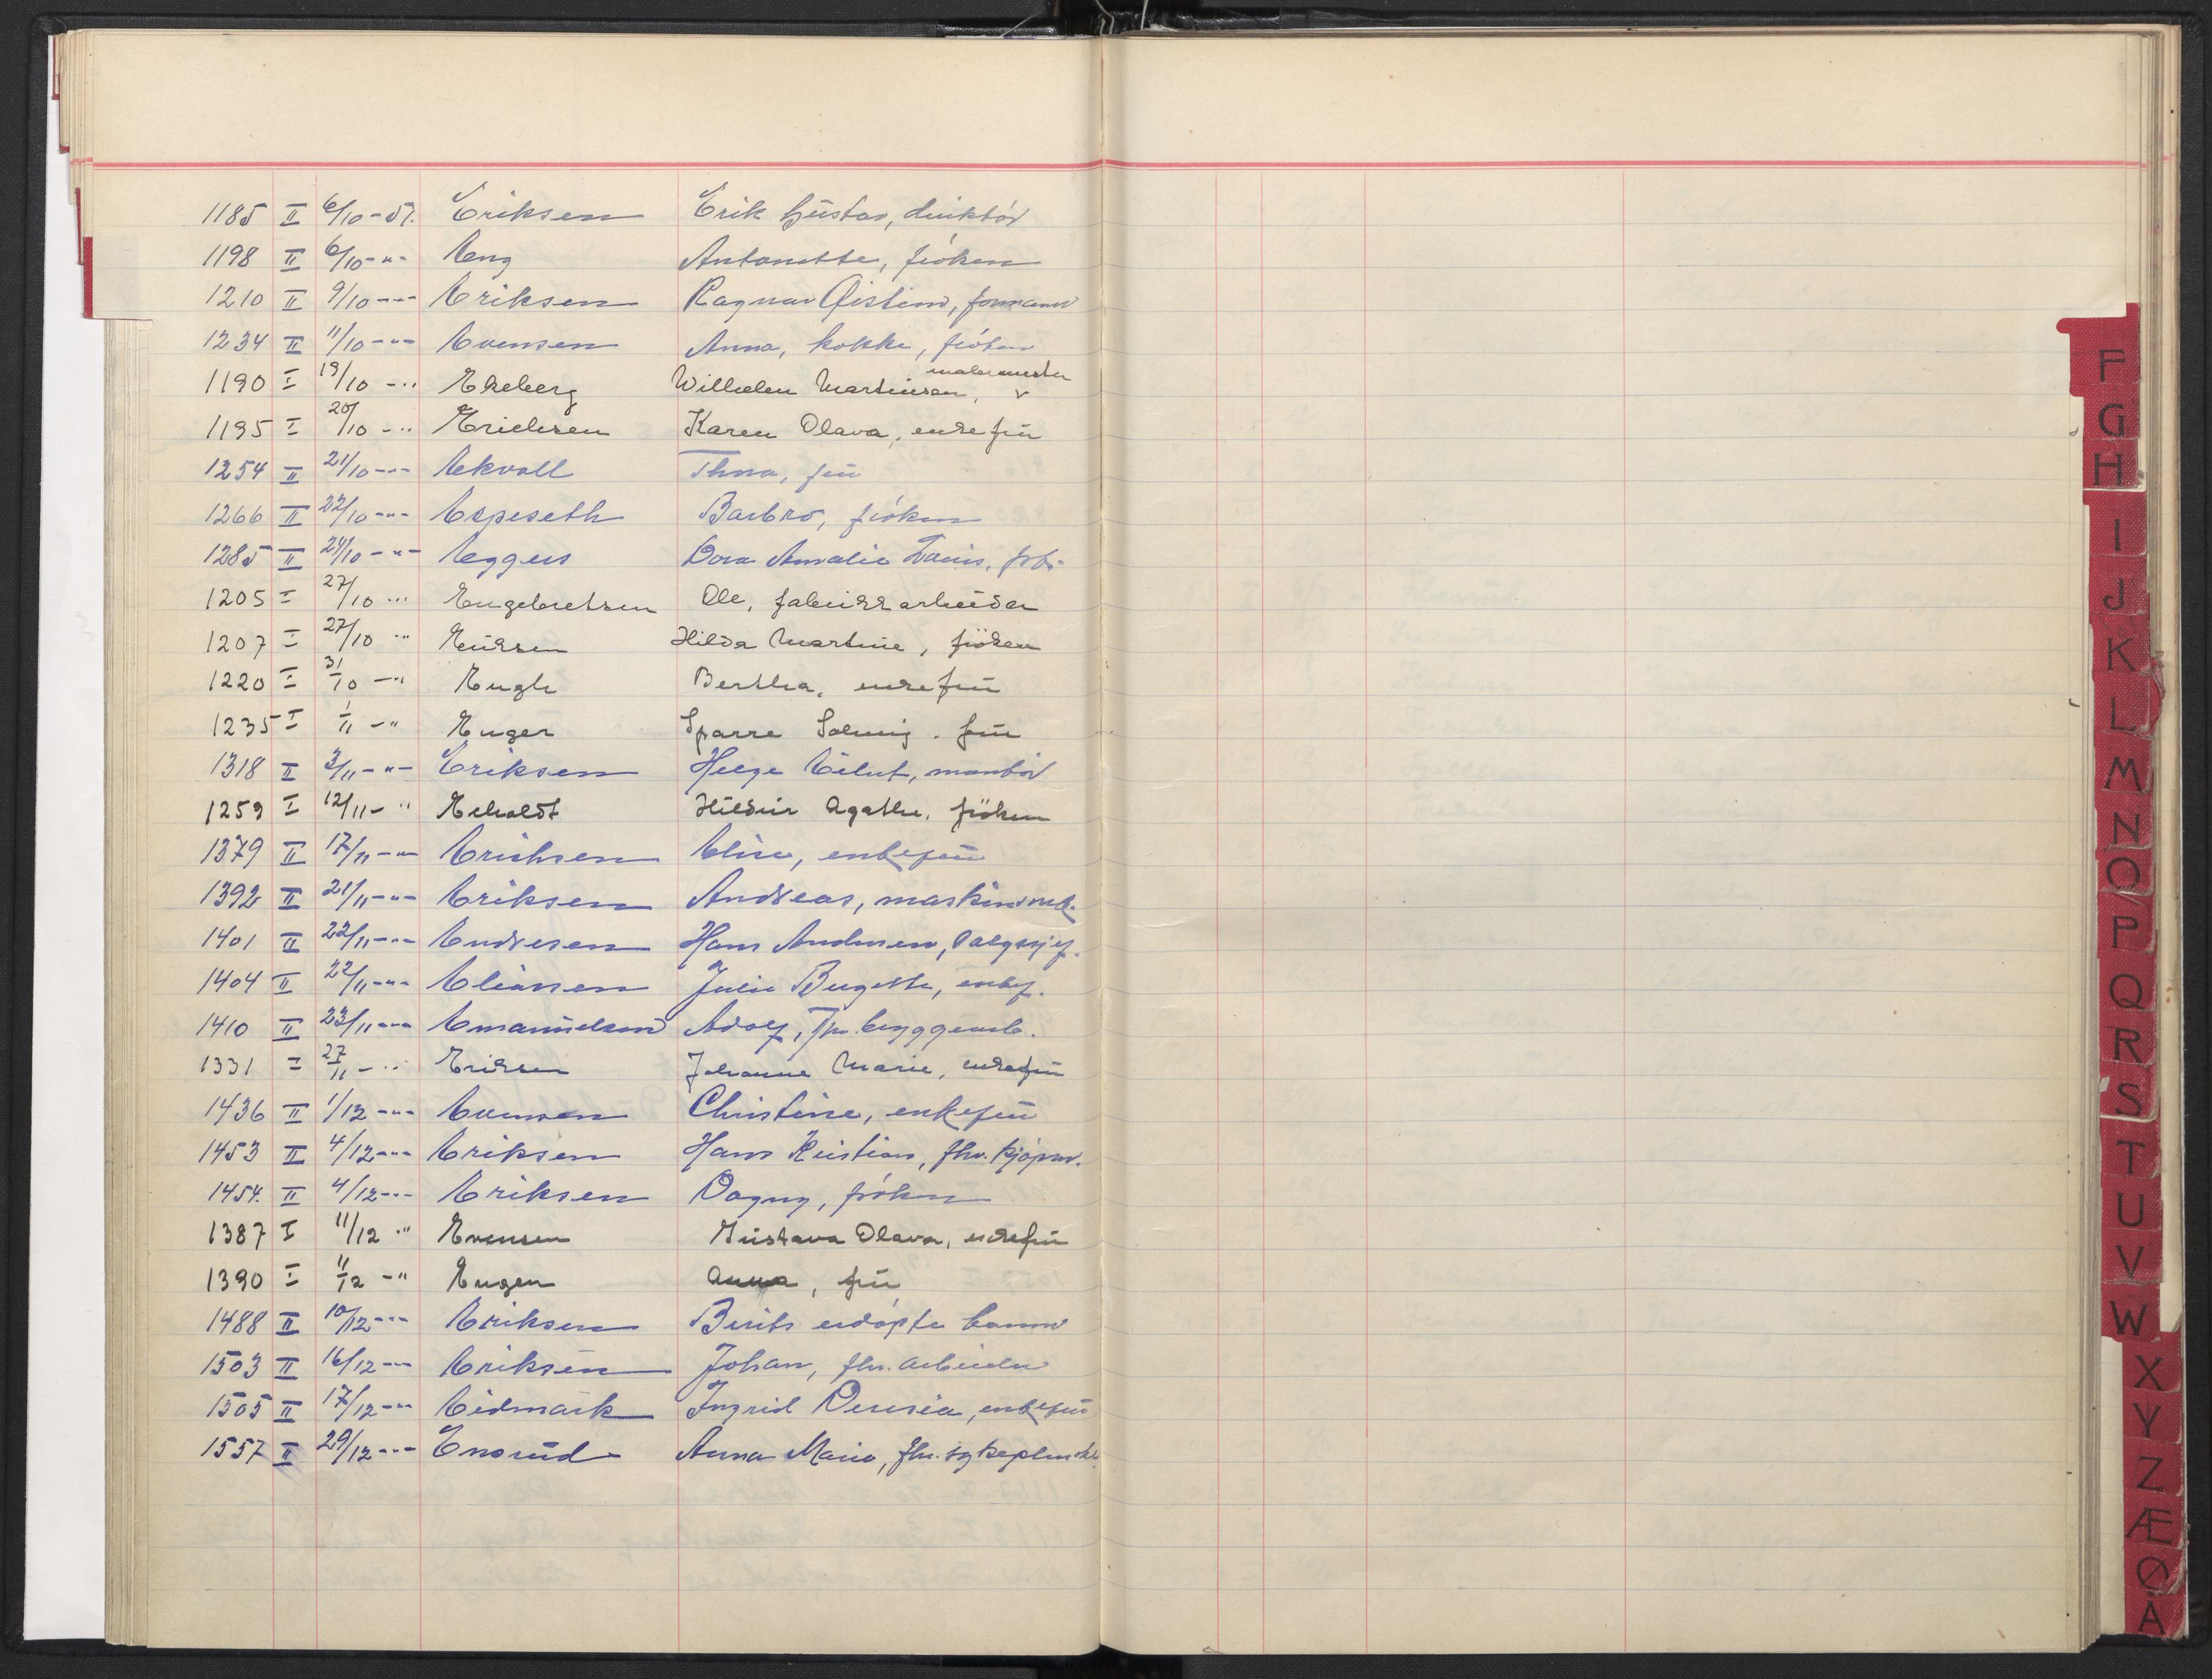 1185 II 6/10-51. Eriksen Erik Gustav, direktør
1198 II 6/10 -"- Eng Antonette, frøken
1210 II 9/10 -"- Eriksen Ragnar Øistein, formann
1234 II 11/10 -"- Evensen Anna, kokke, frøken
malermester
1190 I 19/10 -" Ekeberg Wilhelm Martinsen, v
1195 I 20/10 -" Erichsen Karen Olava, enkefrü
1254 II 21/10 -"- Ekvoll Thora, frü
1266 II 22/10 -"- Espeseth Barbro, frøken
1285 II 24/10 -"- Eggers Dora Amalie
1205 I 27/10 -" Engebretsen Ole, fabrikkarbeider
1207 I 27/10 " Eriksen Hilda Martine, frøken
1220 I 31/10 -" Engh Bertha, enkefrü
1235 I 1/11 -" Enger Sparre Solveig. frü
1318 II 3/11 -"- Eriksen Helge Eilut, montør
1259 I 12/11 -" Echoldt Agathe, frøken
1379 II 17/11 -"- Erichsen Elise, enkefrü
1392 II 21/11 -"- Eriksen Andreas,
1401 II 22/11 -"- Endresen Hans Andersen,
1404 II 22/11 -"- Eliassen Julie enkef.
1410 II 23/11 -"- Emanuelson Adolf, fhv. bryggearb.
1331 I 27/11 -" Eriksen Johanne Marie, enkefrü
1436 II 1/12 -"- Evensen Christine, enkefrü
1453 II 4/12 -"- Eriksen Hans Kristian, fhv. kjøpm.
1454. II 4/12 -"- Eriksen Dagny, frøken
1387 I 11/12 " Evensen Gustava Olava, enkefrü
1390 I 11/12 -" Engen Anna, frü
1488 II 10/12 -"- Eriksen Berits udøpte barn
1503 II 16/12 -"- Eriksen Johan, fhv. arbeider
1505 II 17/12 -"- Eidmark Ingrid enkefrü
1557 II 29/12 -"- Ensrud Anna Marie, fhv.
F
G
H
I
J
K
L
M
N
O
P
Q
R
S
T
U
V
W
X
Y
Z
Æ
Ø
Å